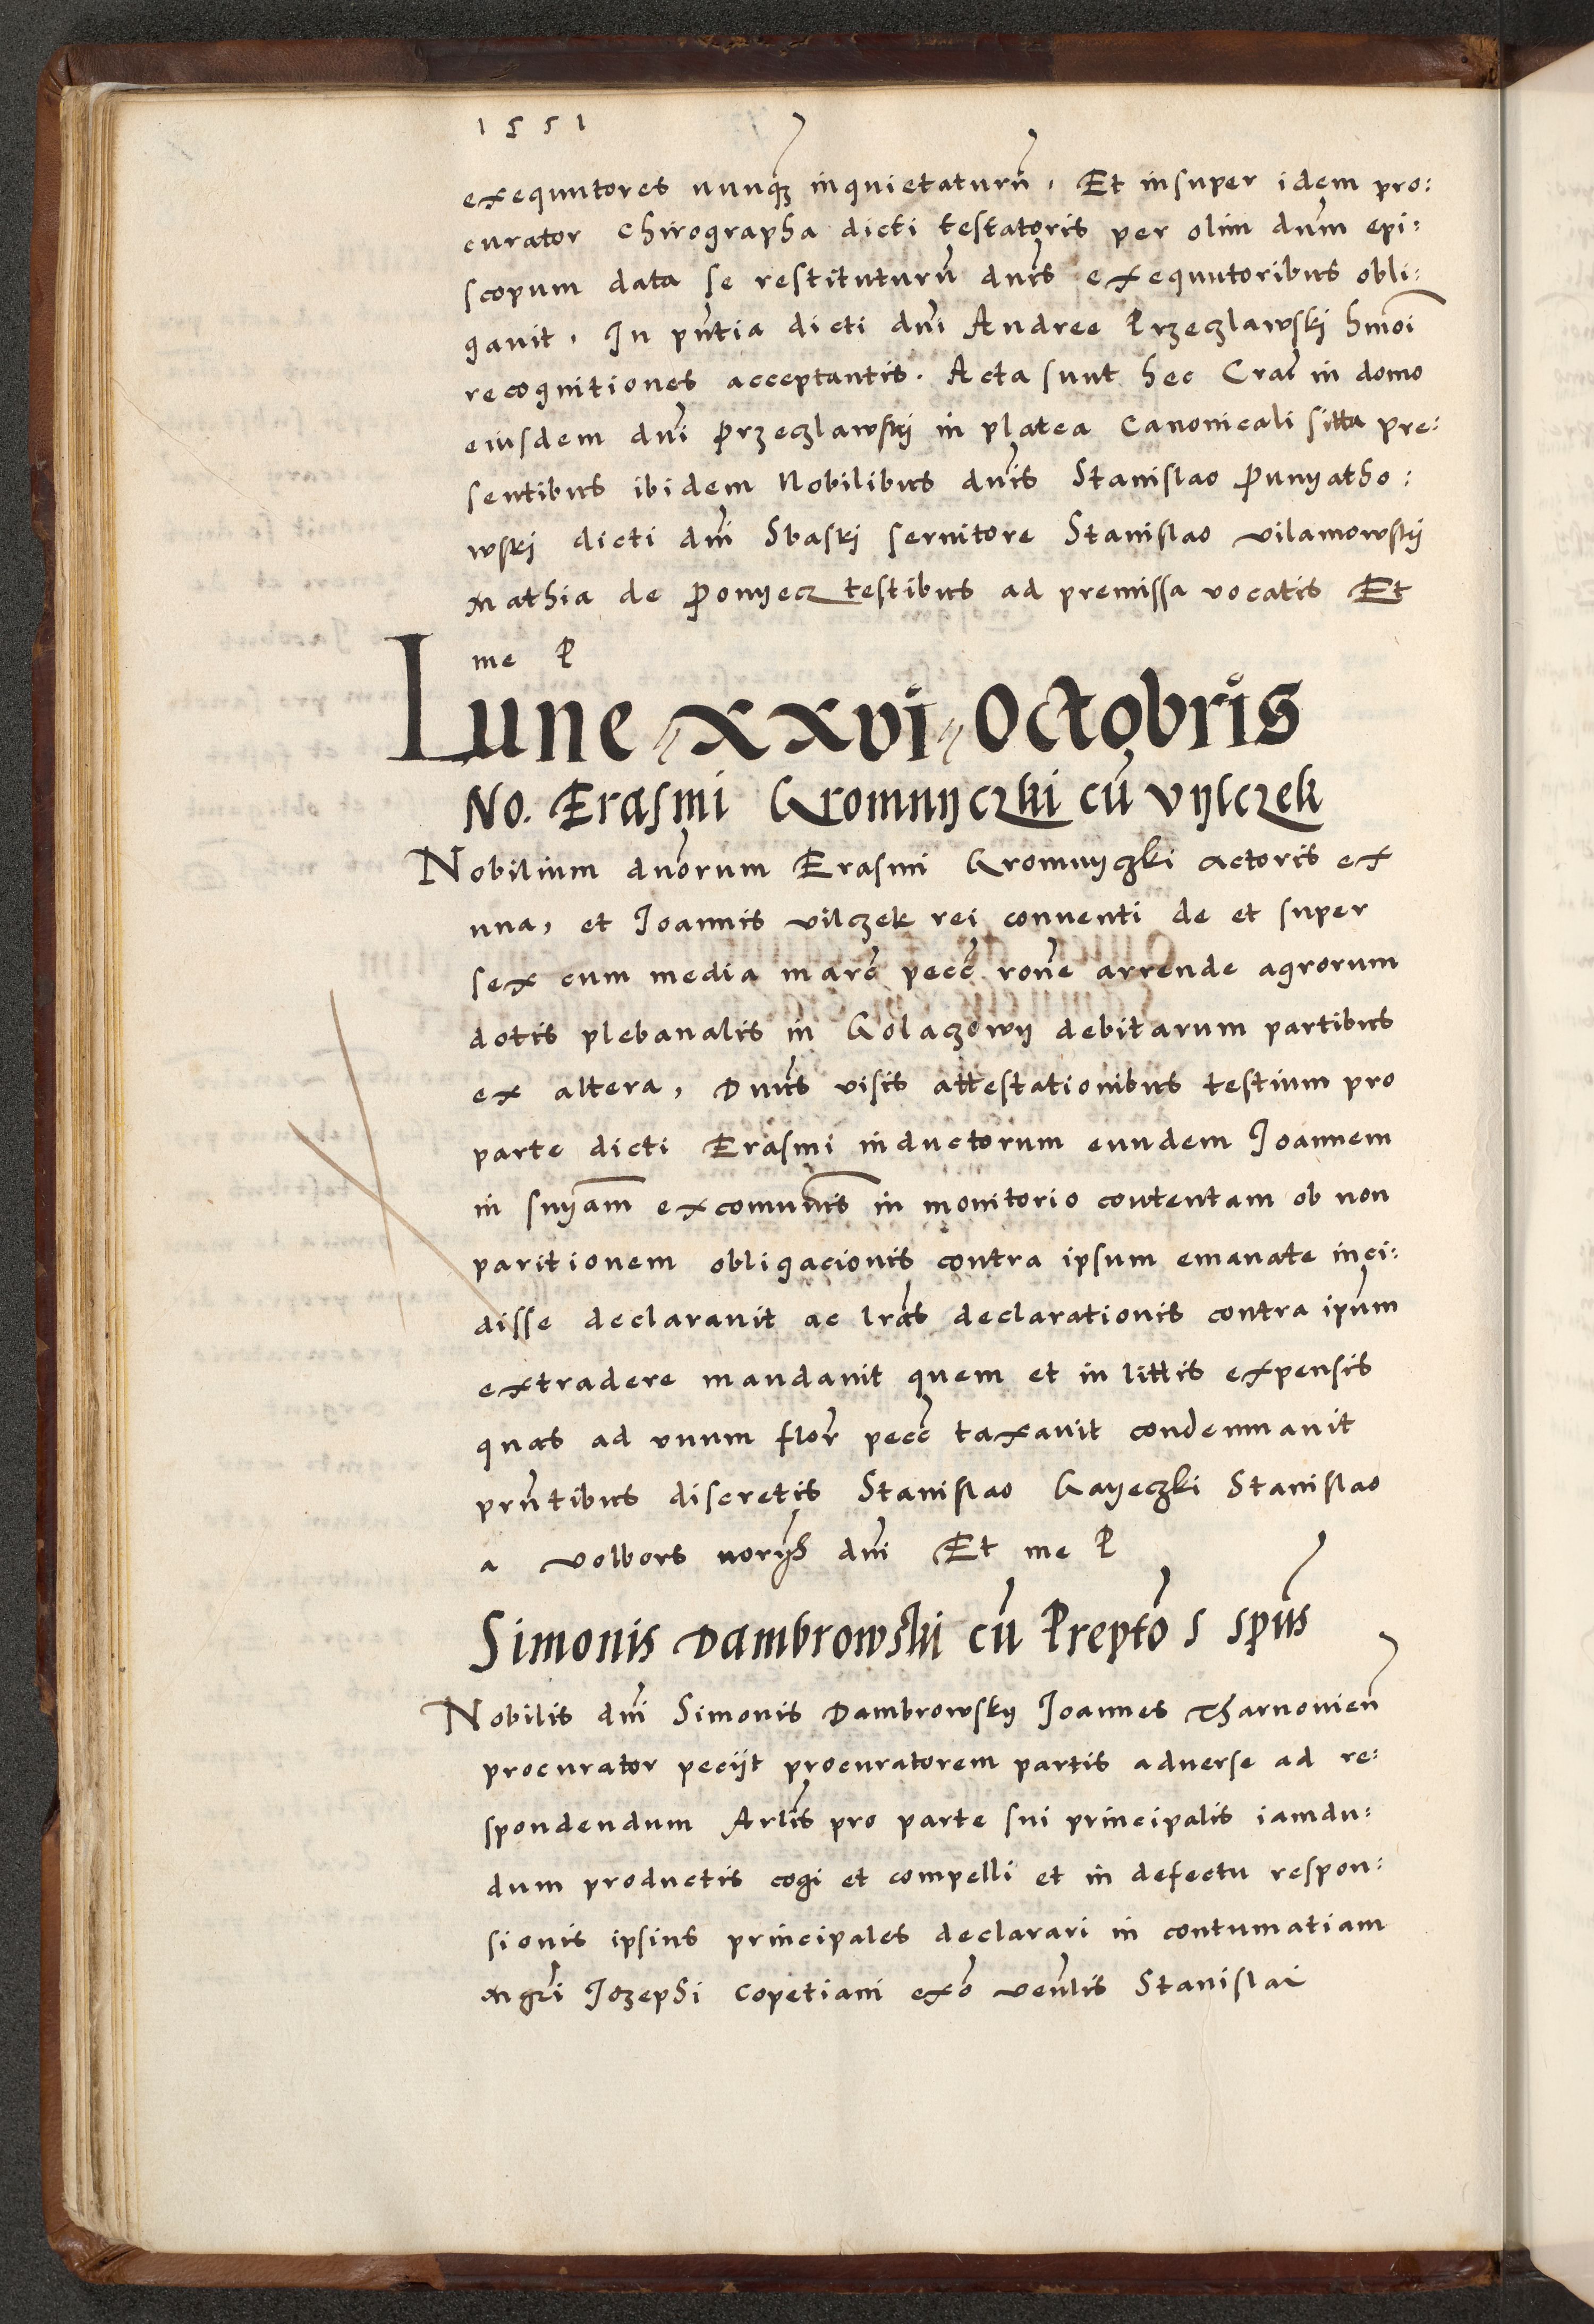 1551
exequutores nunq̃ʒ inquietaturũ. Et insuper idem pro:
curator Chirographa dicti testatoris per olim dñm epi:
scopum data se restituturũ dñis exequutoribus obli:
gauit. In pñtia dicti dñi Andree Przeczlawskj hmõi
recognitiones acceptantis. Acta sunt hec Crac̃ in domo
eiusdem dñi Przeczlawskij in platea Canonicali sitta pre:
sentibus ibidem Nobilibus dñis Stanislao Punyatho:
wskj dicti dñi Sbaskj seruitore Stanislao vilamowskij
Mathia de Ponyecz testibus ad premissa vocatis Et
me P
Lune xxvi Octobris
No. Erasmi Gromnyczki cũ Vylczek
Nobilium dnõrum Erasmi Gromnyczki actoris ex
una, et Joannis vilczek rei conuenti de et super
sex cum media marc̃ pecc̃ rõne arrende agrorum
dotis plebanalis in Golaczowy debitarum partibus
ex altera, Dñus visis attestationibus testium pro
parte dicti Erasmi inductorum eundem Joannem
in snỹam excomuñis in monitorio contentam ob non
paritionem obligacionis contra ipsum emanate inci:
disse declarauit ac lrãs declarationis contra ipũm
extradere mandauit quem et in littis expensis
quas ad vnum flor̃ pecc̃ taxauit condemnauit
prñtibus discretis Stanislao Gayeczki Stanislao
a volbors norÿs dñi Et me P
Simonis Dambrowski cũ Preptõ S Spũs
Nobilis dñi Simonis Dambrowsky Joannes Tharnouieñ
procurator peciit procuratorem partis aduerse ad re:
spondendum Artlis pro parte sui principalis iamdu:
dum productis cogi et compelli et in defectu respon:
sionis ipsius principales declarari in contumatiam
Mgr̃i Jozephi Copetiani exõ veñlis Stanislai